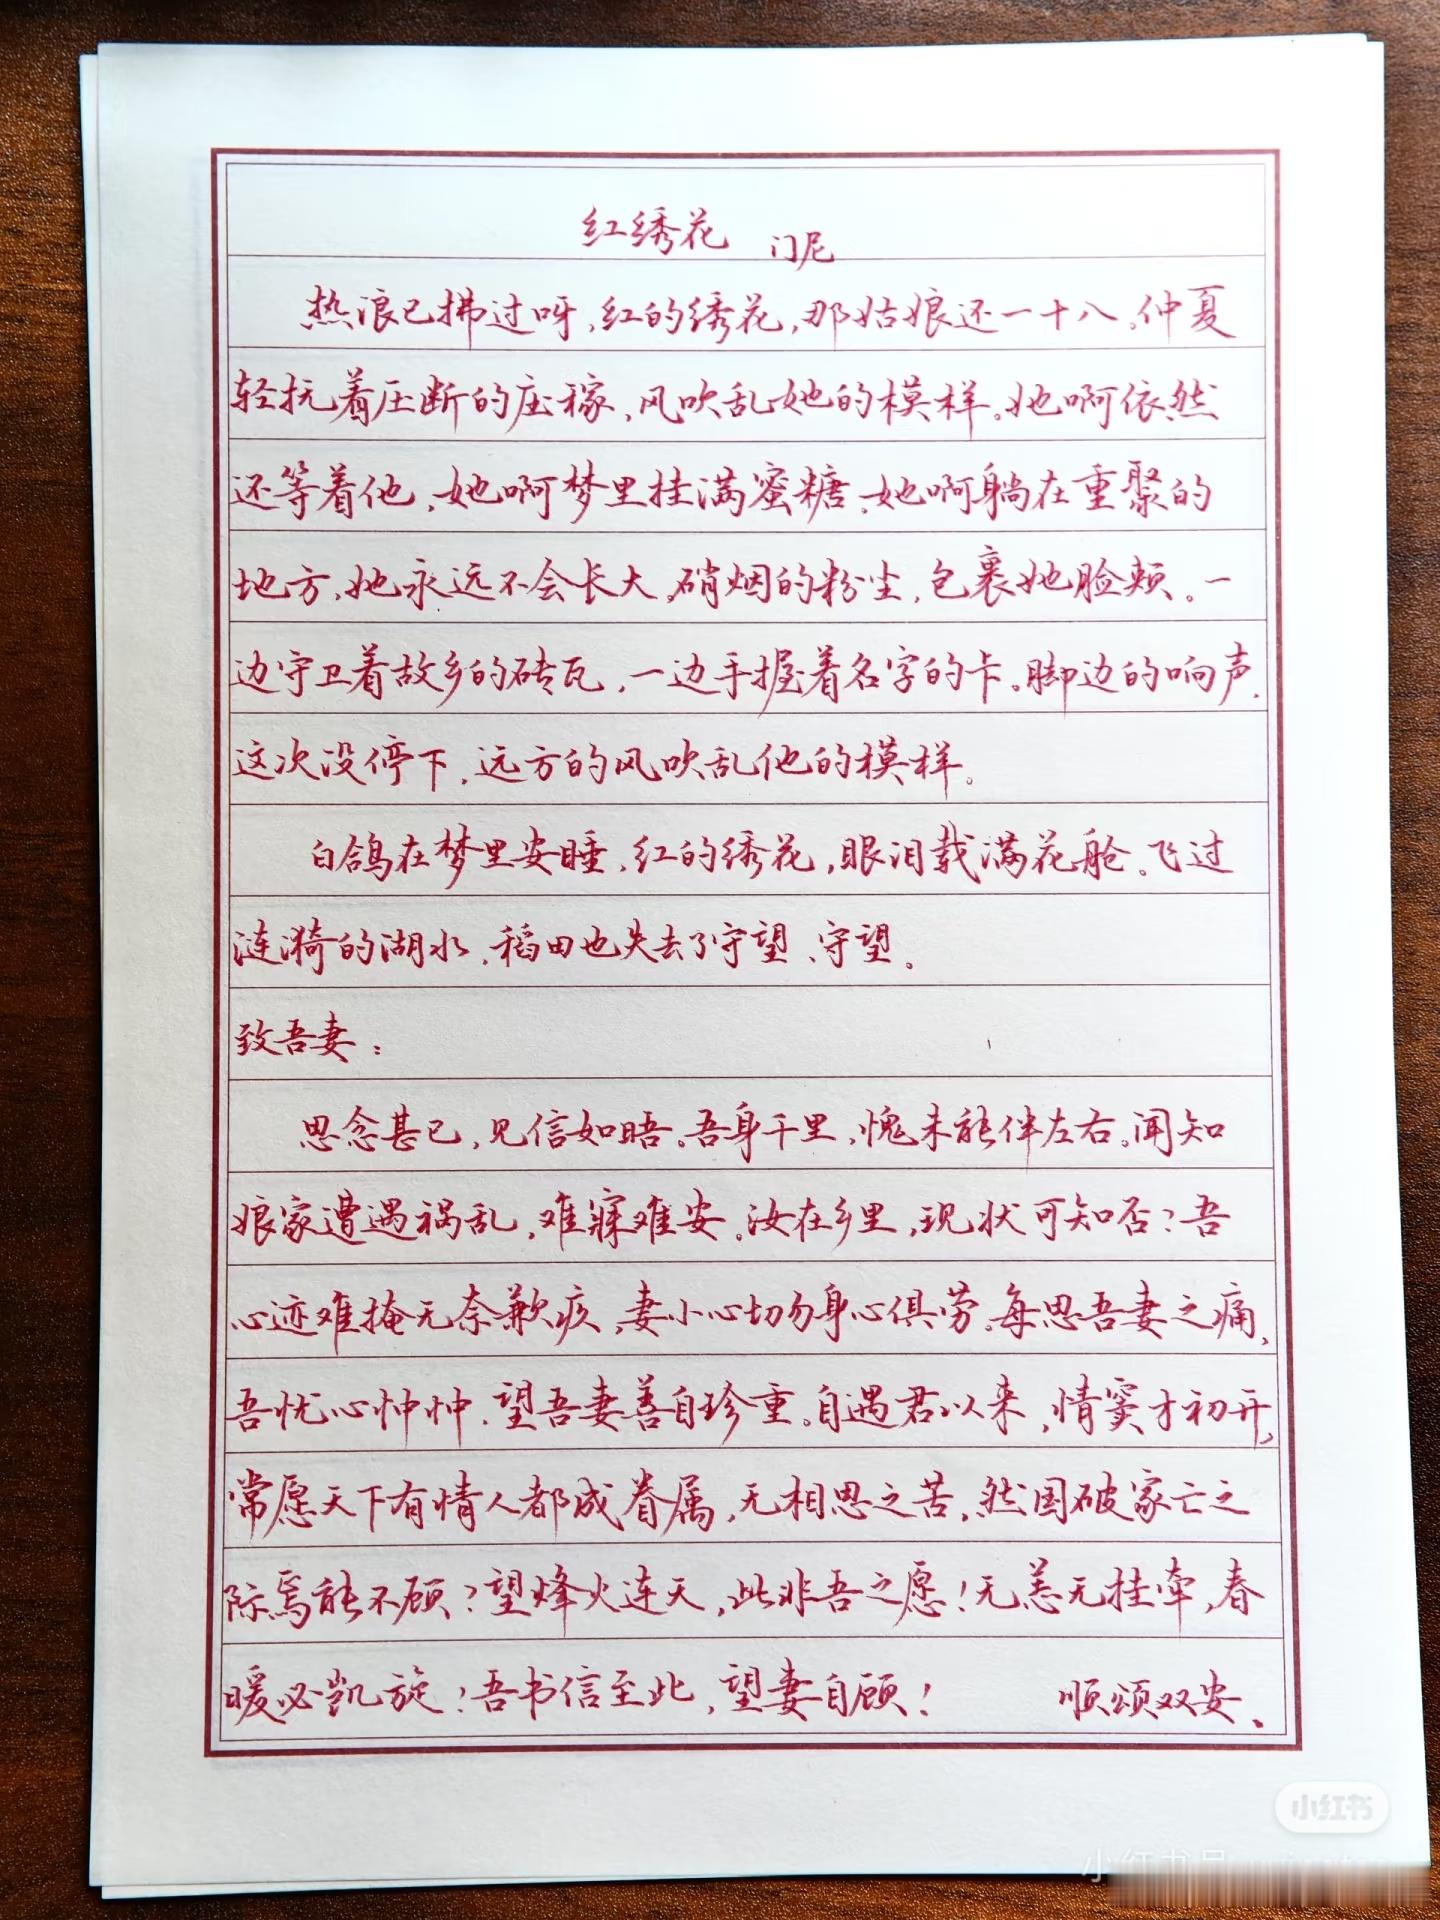 红绣花 门尼
热浪已拂过呀,红的绣花,那姑娘还一十八。仲夏
轻抚着压断的庄稼,风吹乱她的模样。她啊依然
还等着他,她啊梦里挂满蜜糖,她啊躺在重聚的
地方,她永远不会长大。硝烟的粉尘,包裹她脸颊。一
边守卫着故乡的砖瓦,一边手握着名字的卡。脚边的响声,
这次没停下,远方的风吹乱他的模样。
白鸽在梦里安睡,红的绣花,眼泪载满花舱。飞过
涟漪的湖水,稻田也失去了守望、守望。
致吾妻:
思念甚已,见信如晤。吾身千里,愧未能伴左右。闻知
娘家遭遇祸乱,难寐难安。汝在乡里,现状可知否?吾
心迹难掩无奈歉疚,妻小心切勿身心俱劳。每思吾妻之痛,
吾忧心忡忡,望吾妻善自珍重。自遇君以来,情窦才初开,
常愿天下有情人都成眷属,无相思之苦,然国破家亡之
际焉能不顾?望烽火连天,此非吾之愿!无恙无挂牵,春
暖必凯旋!吾书信至此,望妻自顾! 顺颂双安。
小红书